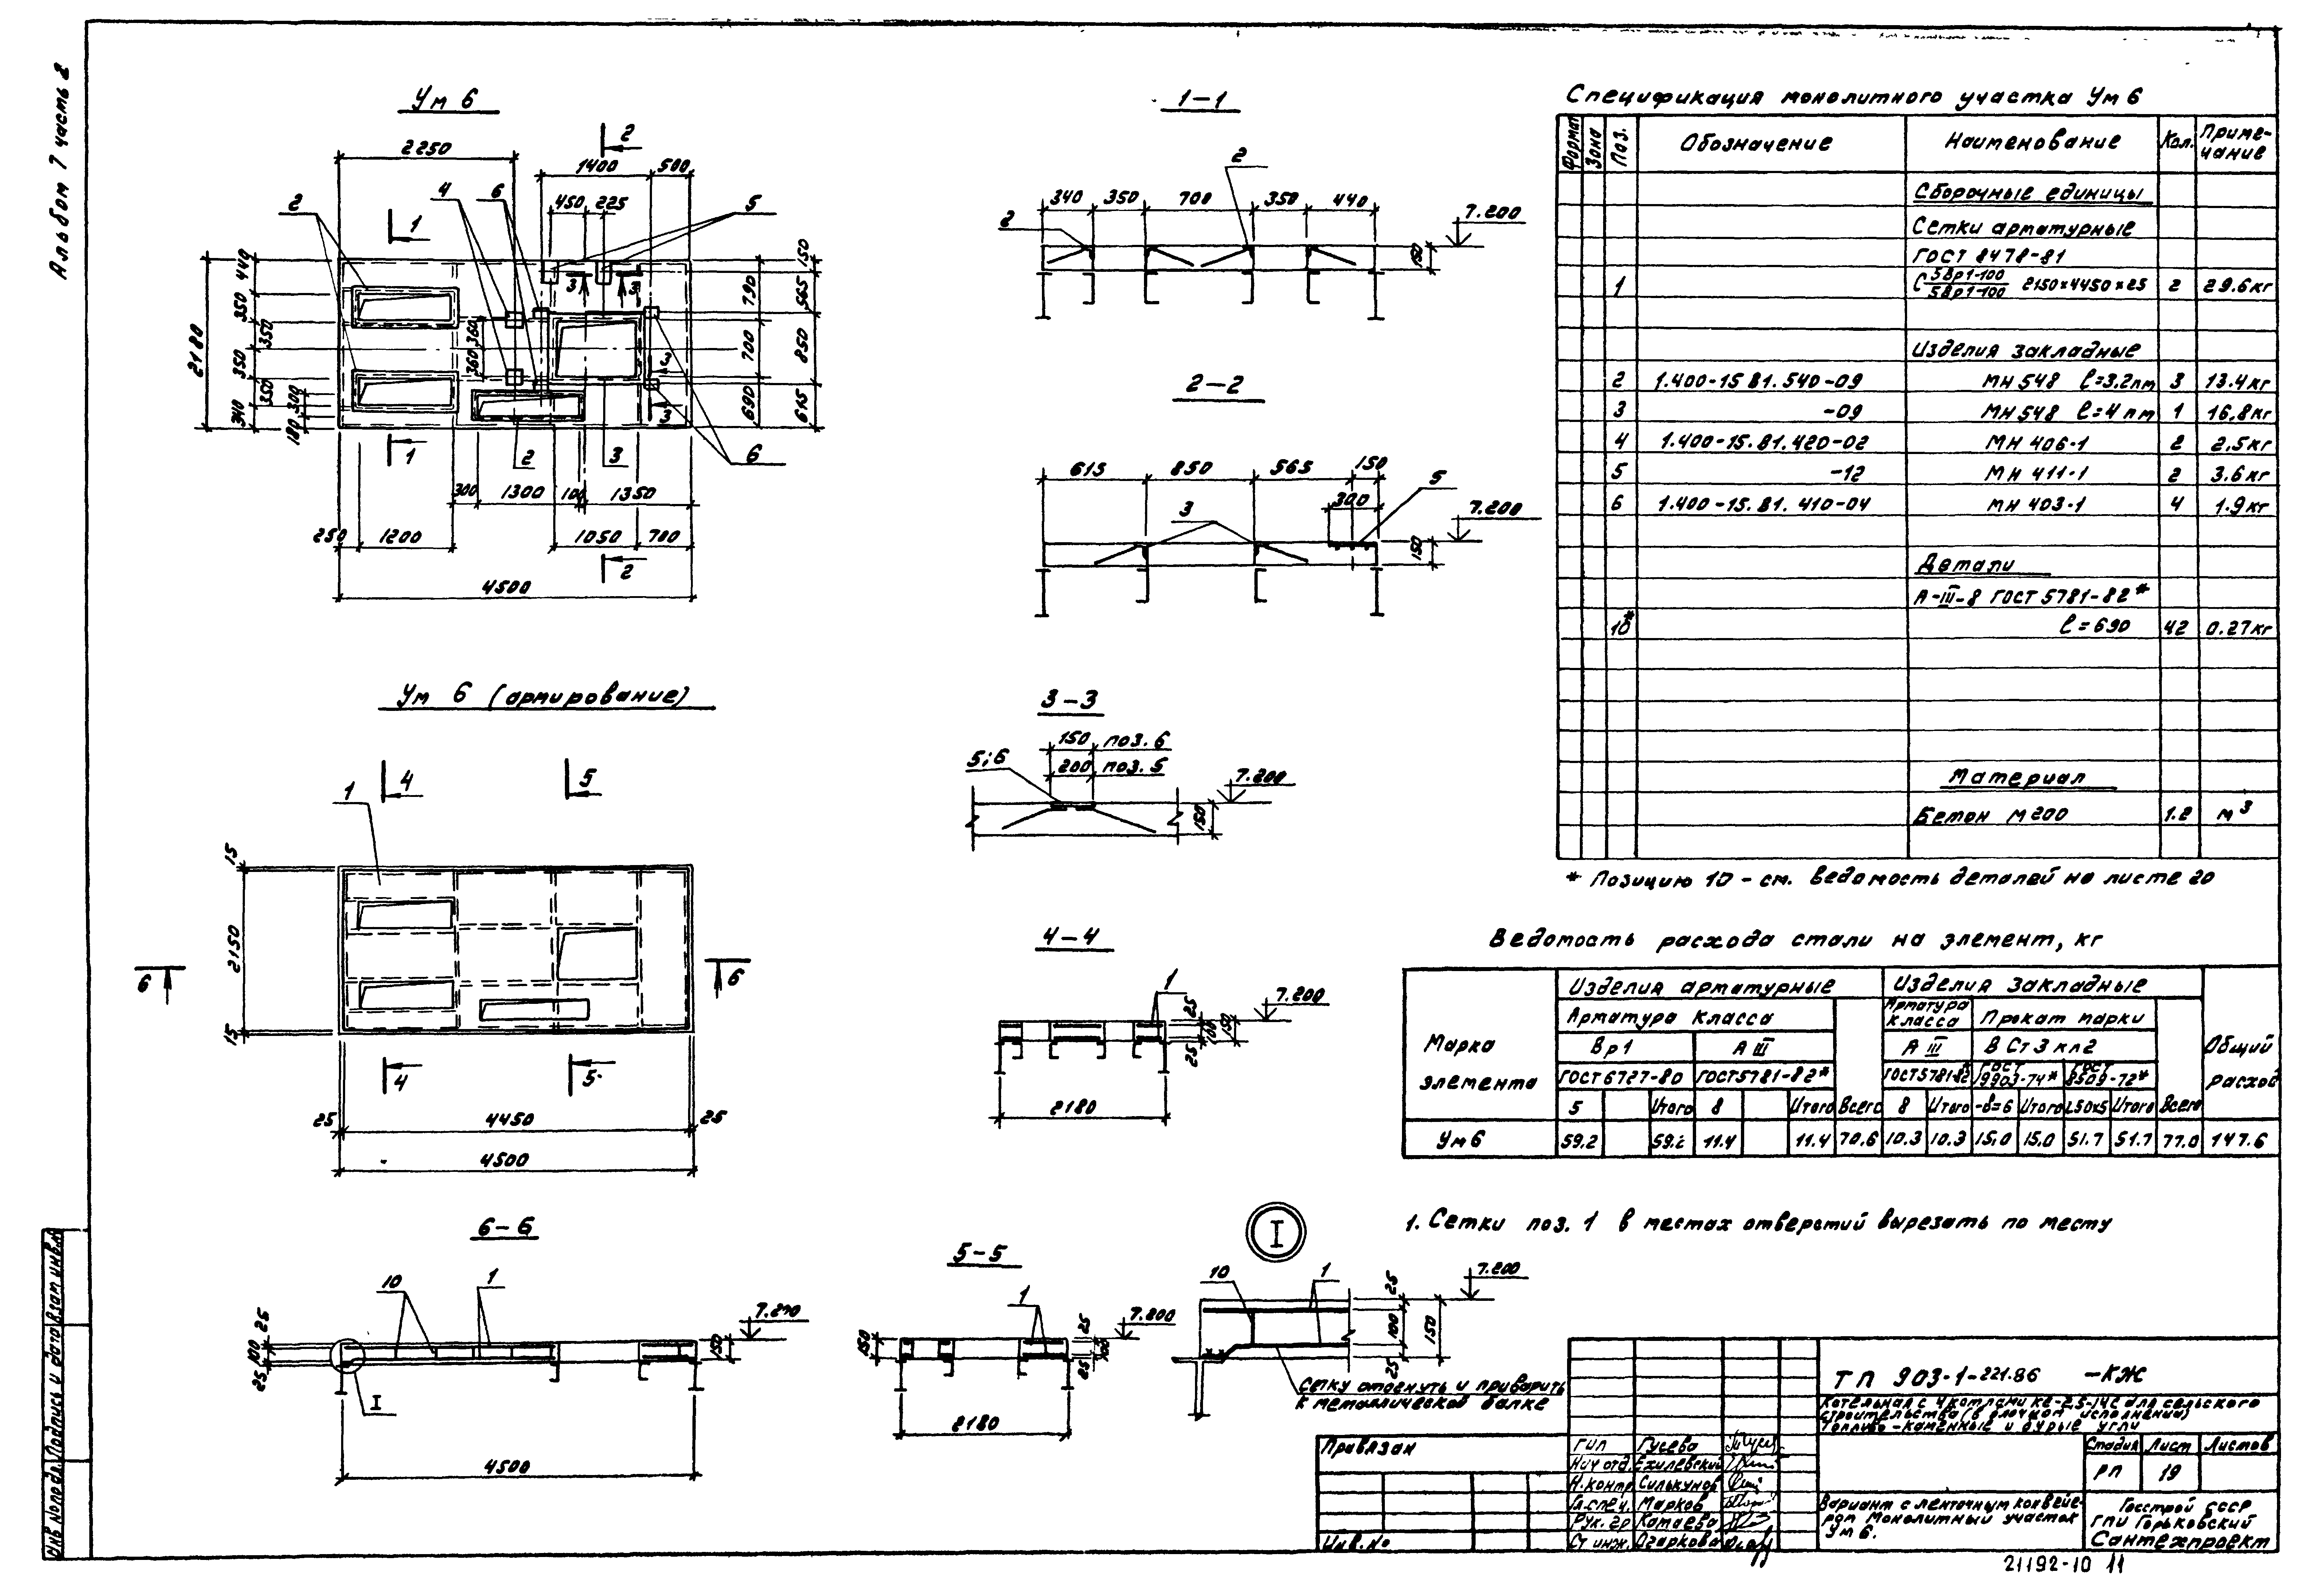 Альбом 7 часть 2
Ум 6
2250
2
1400
500
4
6
5
450
225
2
1
440
350
350
350
350
340
2180
300
180
360
360
3
3
3
3
150
790
565
700
850
690
615
1
2
3
6
300
1300
100
1350
250
1200
1050
700
2
4500
Ум 6 (армирование)
1
4
5
15
2150
15
6
6
4
5
25
4450
25
4500
6-6
10
1
25
100
25
7.200
150
I
4500
1-1
2
340
350
700
350
440
7.200
2
150
2-2
615
850
565
150
5
300
3
7.200
150
3-3
150 поз. 6
5;6
200 поз. 5
7.200
150
4-4
1
25
100
25
150
7.200
2180
5-5
1
150
25
100
25
7.200
2180
I
10
1
25
100
25
150
7.200
Сетку отогнуть и приварить
к металлической балке
Спецификация монолитного участка Ум 6
Формат
Зона
Поз.
Обозначение
Наименование
Кол.
Приме-
чание
Сборочные единицы
Сетки арматурные
ГОСТ 8478-81
1 С 5Вр1-100/5Вр1-100 2150×4450×25 2 29.6кг
Изделия закладные
2 1.400-15 В1. 540-09 МН 548 ℓ=3.2пм 3 13.4кг
3 -09 МН 548 ℓ=4пм 1 16.8кг
4 1.400-15. В1. 420-02 МН 406-1 2 2.5кг
5 -12 МН 411-1 2 3.6кг
6 1.400-15. В1. 410-04 МН 403-1 4 1.9кг
Детали
А-III-8 ГОСТ 5781-82*
10* ℓ=690 42 0.27кг
Материал
Бетон М200 1.2 м³
* Позицию 10 - см. ведомость деталей на листе 20
Ведомость расхода стали на элемент, кг
Марка
элемента
Изделия арматурные
Изделия закладные
Общий
расход
Арматура класса
Арматура
класса
Прокат марки
Вр1
А III
А III
В Ст 3 кп2
ГОСТ 6727-80
ГОСТ5781-82*
ГОСТ5781-82*
ГОСТ
19903-74*
ГОСТ
8509-72*
5 Итого 8 Итого Всего 8 Итого -δ=6 Итого ∟50×5 Итого Всего
Ум 6 59.2 59.2 11.4 11.4 70.6 10.3 10.3 15.0 15.0 51.7 51.7 77.0 147.6
1. Сетки поз. 1 в местах отверстий вырезать по месту
ТП 903-1-221.86 -КЖ
Котельная с 4 котлами КЕ-2.5-14С для сельского
строительства (в блочном исполнении)
Топливо - каменные и бурые угли
Привязан
Инв. №
ГИП Гусева
Нач отд. Ехилевский
Н.контр Силькунов
Гл.спец. Марков
Рук. гр Катаева
Ст инж. Огаркова
Стадия Лист Листов
РП 19
Вариант с ленточным конвейе-
ром Монолитный участок
Ум 6.
Госстрой СССР
ГПИ Горьковский
Сантехпроект
Инв № подл. Подпись и дата Взам инв.№
21192-10 11